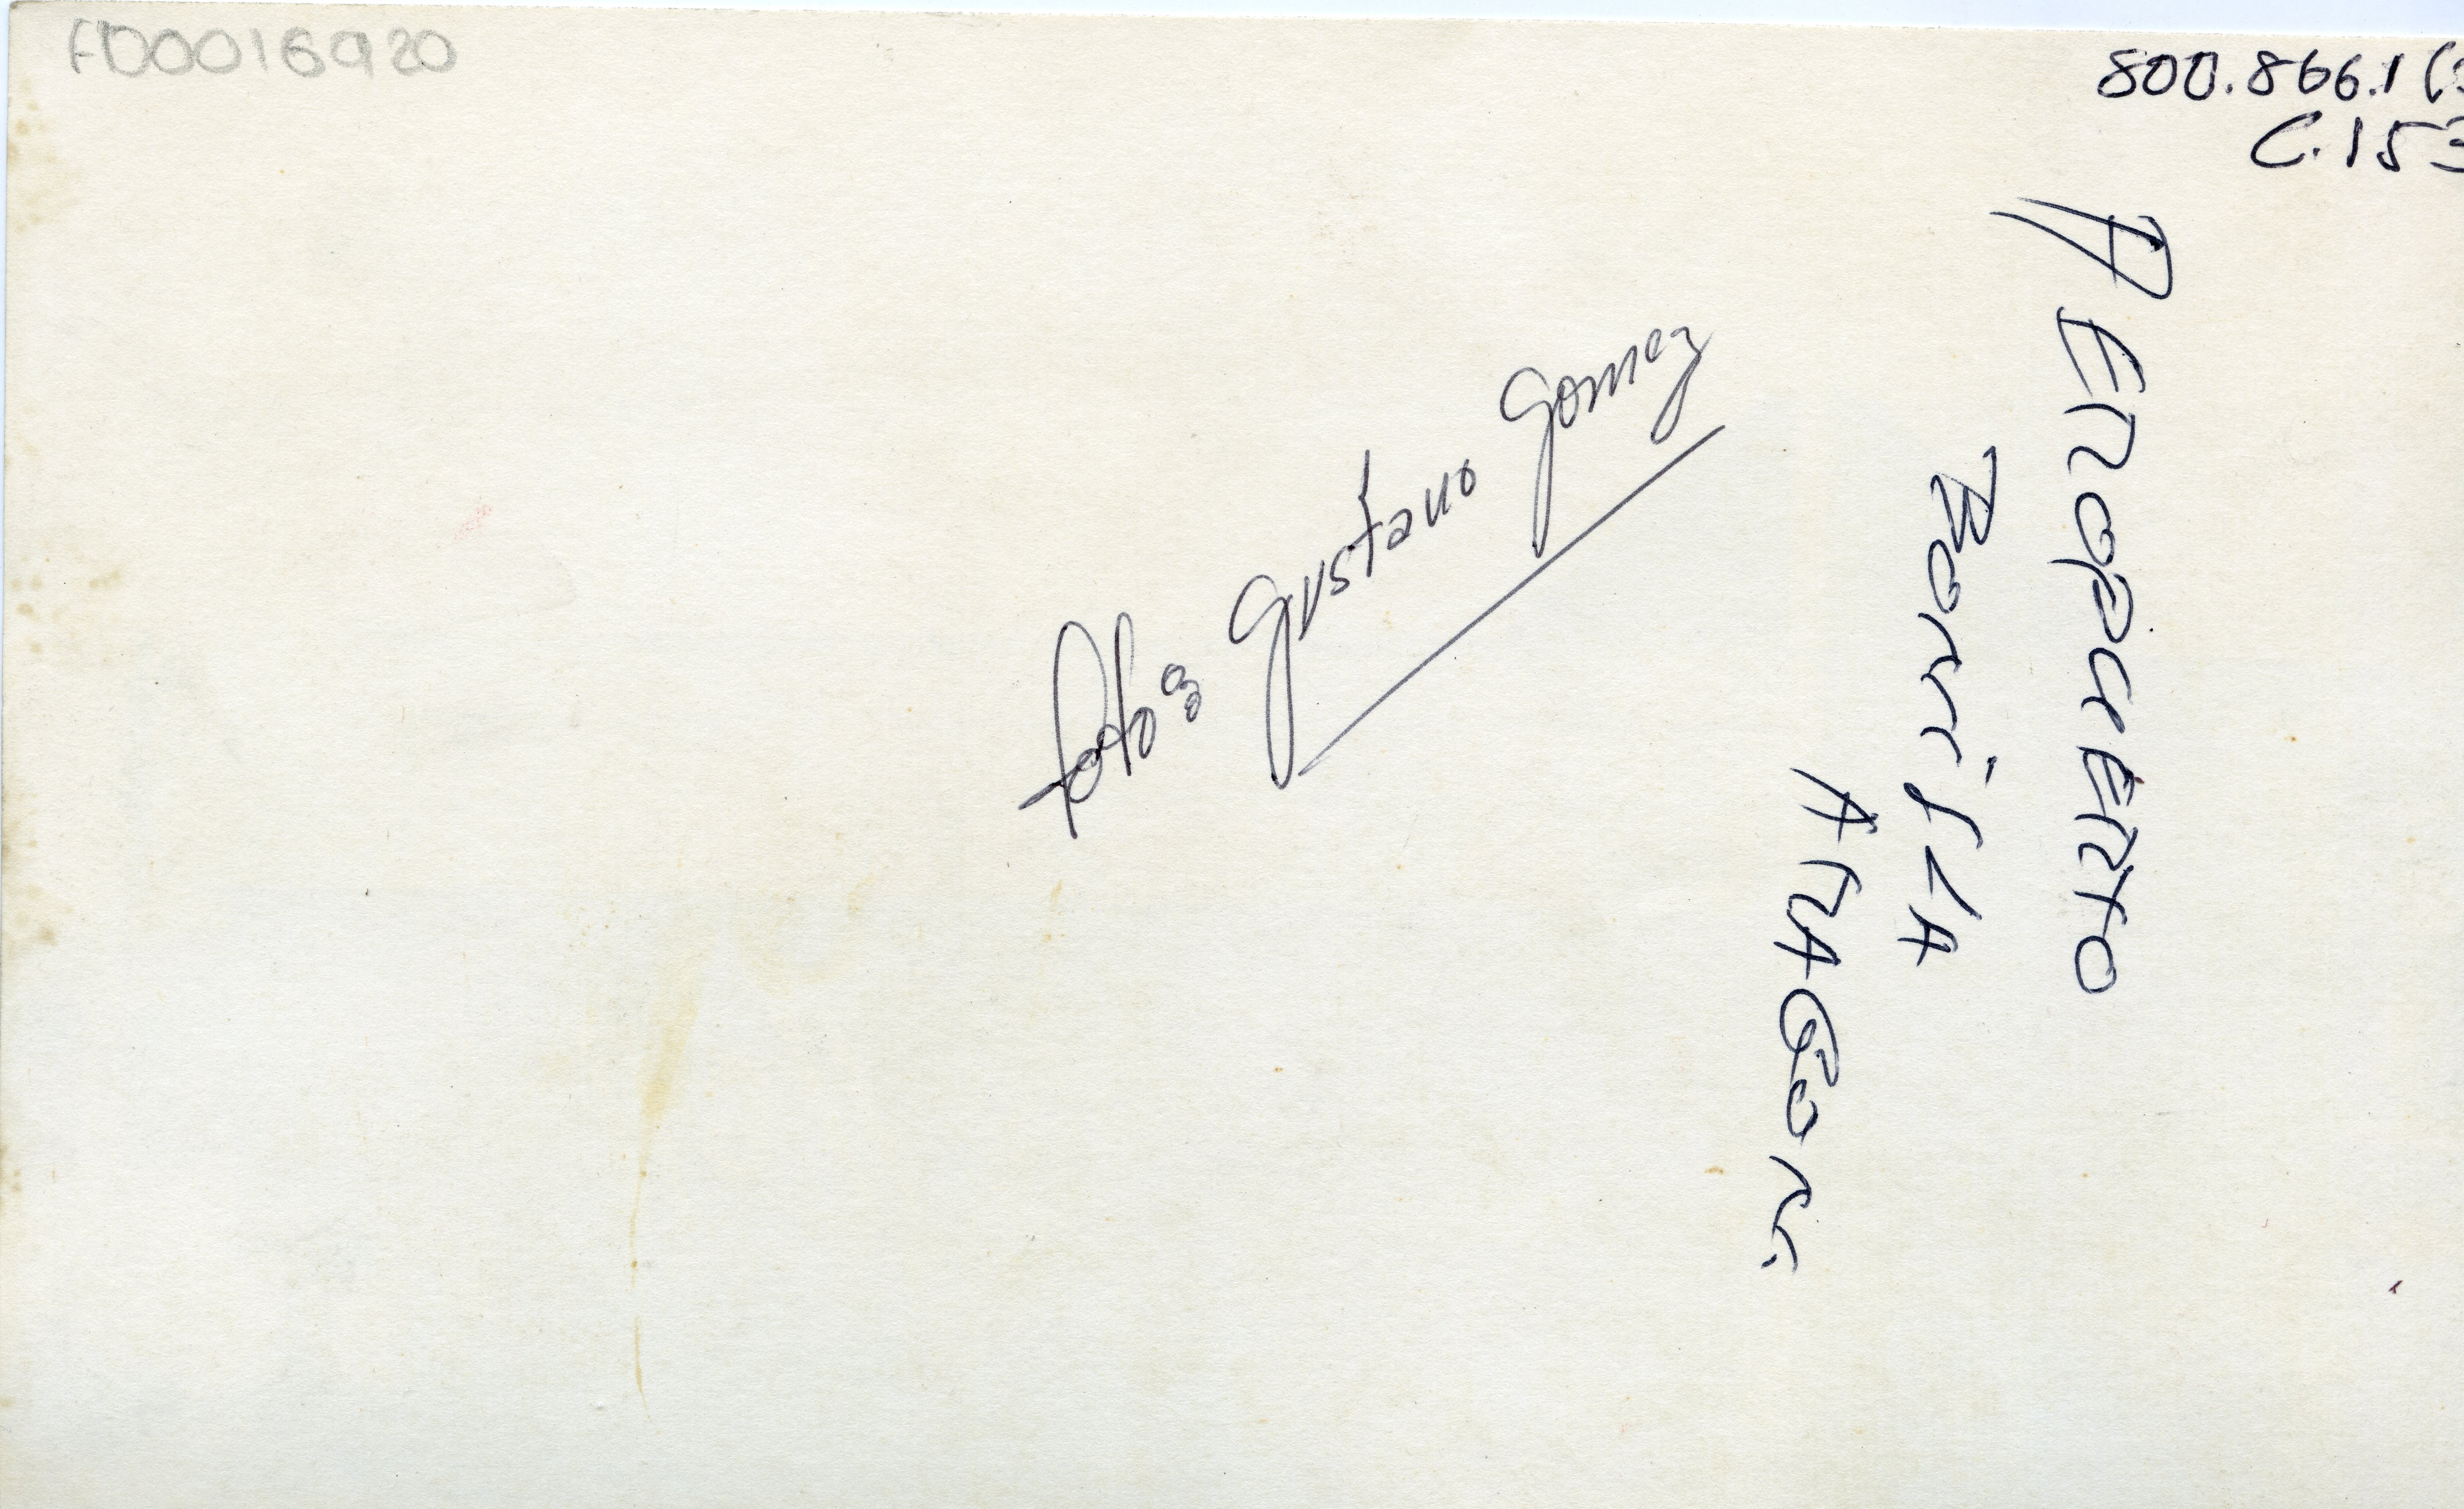 AD0016920
800.866.1 (
C.153
AEROPUERTO
BONILLA
ARAGON.
foto: Gustavo Gomez